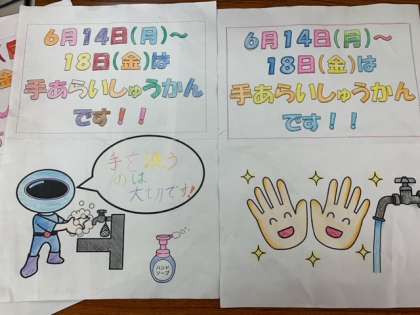 6月14日(月)～
18日(金)は
手あらいしゅうかん
です！！
手を洗う
のは
大切です!
ハンド
ソープ
6月14日(月)～
18日(金)は
手あらいしゅうかん
です！！